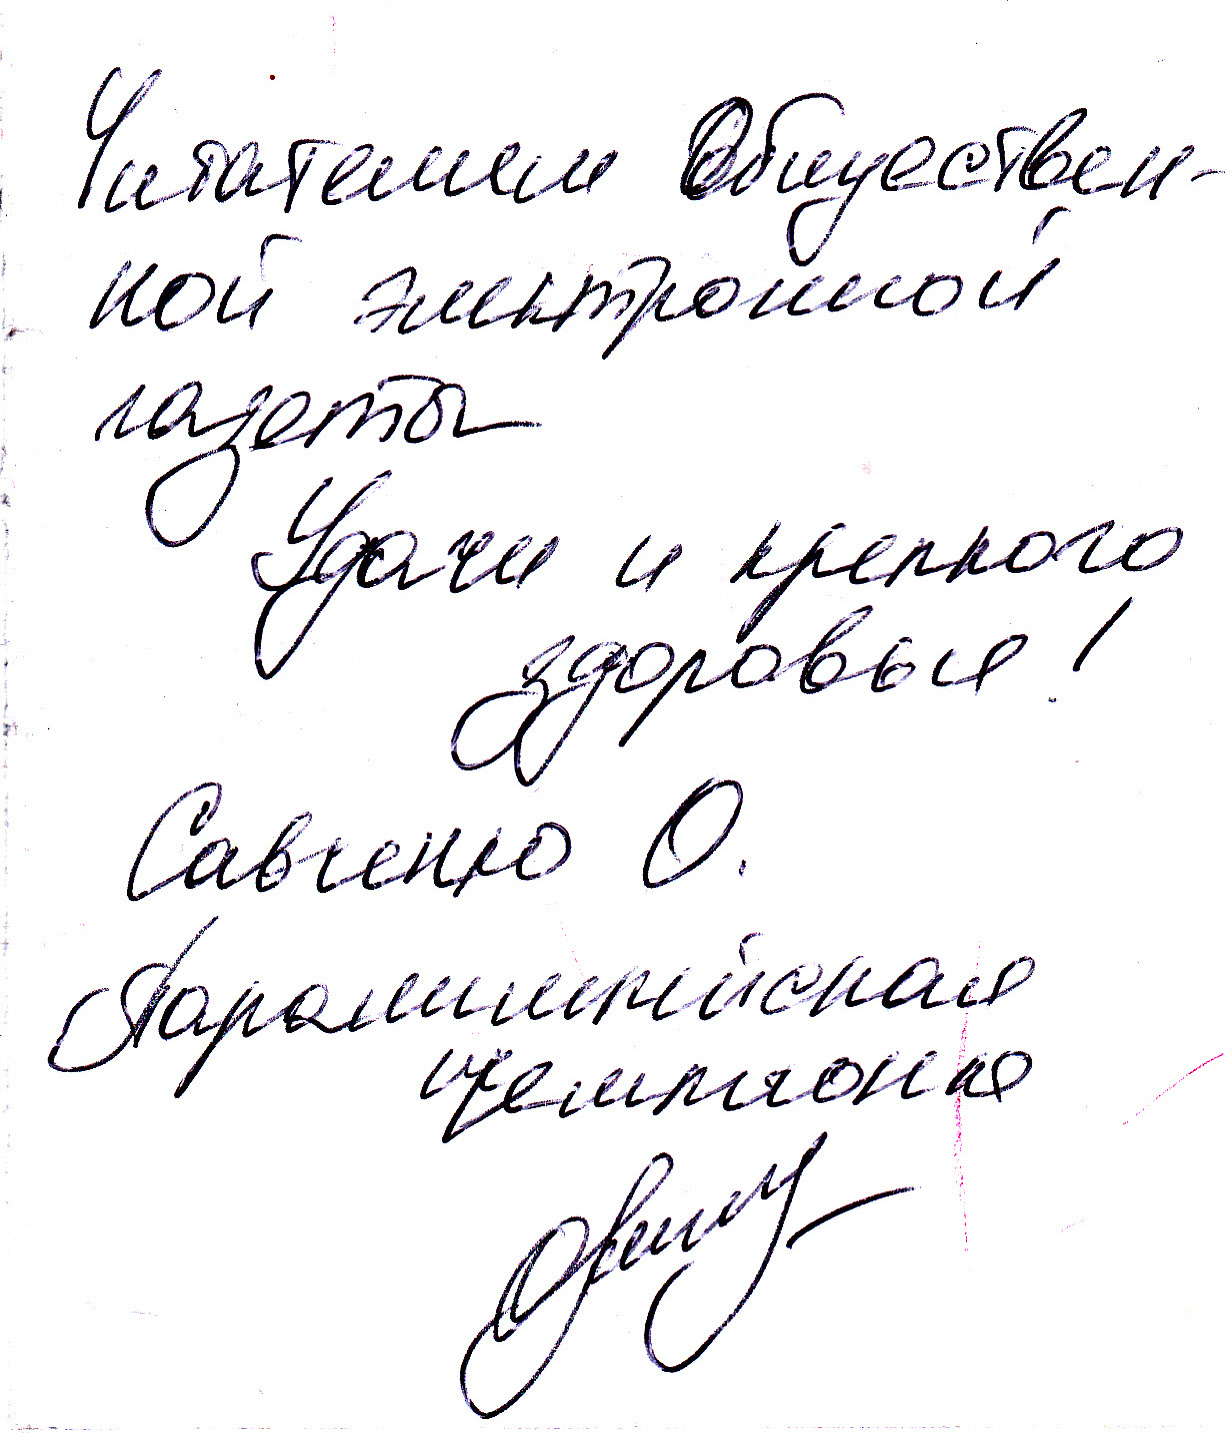 Читателям Обществен-
ной электронной
газеты
Удачи и крепкого
здоровья!
Савченко О.
Паралимпийская
чемпионка